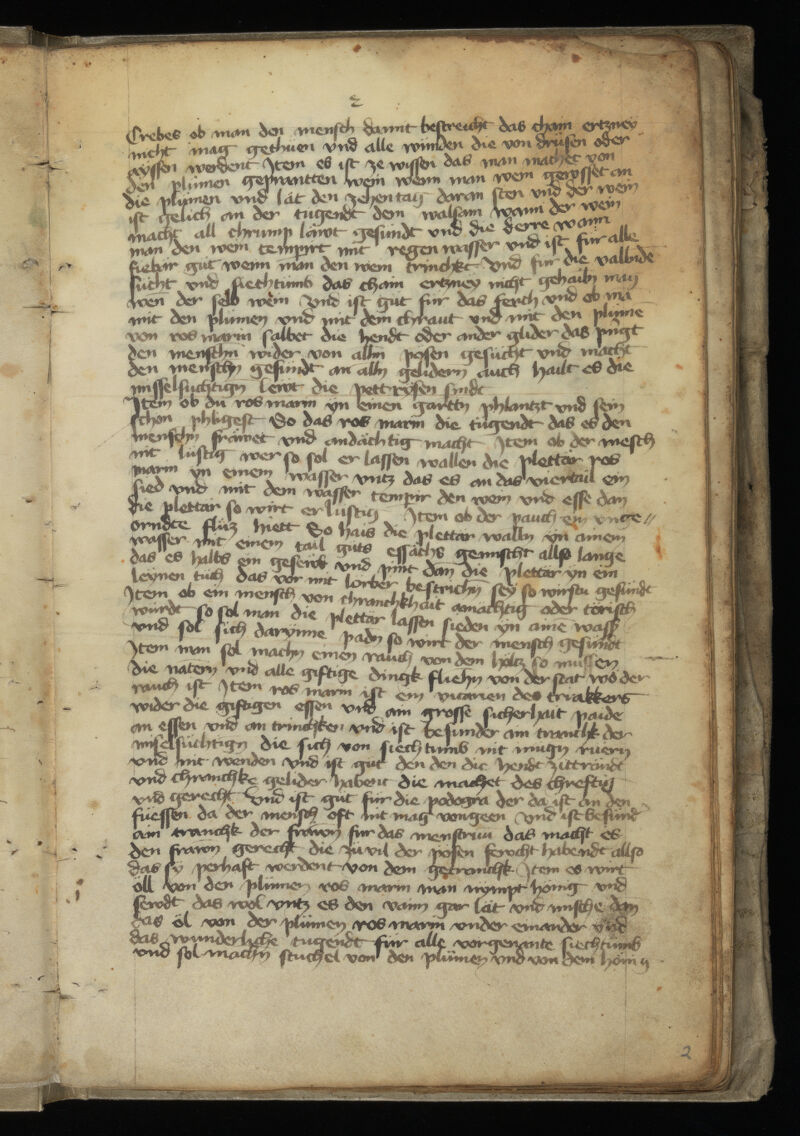 2
Crebes ob man den mensch damit bestreicht das chain ertzney
nicht mag gethuen vnd alle wunden die von drüsen oder
werdent Item es ist ze wissen das man machet von
den plümen geprantten wein wenn man wein gewsset an
die plümen vnd lät den zehen tag daran sten vnd der wein
ist gelich an der tugendt dem walsam wann der wein
macht all chrump läwt gesundt vnd die derre wann
man den wein tempirt mit regen wasser vnd ist für alle
fieber gut wenn man den wein trinchkt Vnd für die vallunde
sücht vnd siechtumb das chain ertzney nicht gehailn mag
wen der selb wein Vnd ist güt für das ferch vnd ob ma
mit den plümen vnd mit dem chraut vnd mit den plüme
von ros marin salbet die hendt oder ander glider das pringt
den menschn wider von alln posen gesücht vnd macht
den menschn gesundt an alln gelidern auch hailt es die
misselsuchtign lewt die pettrysen sindt
Item ob du ros marin yn einen gartn phlantzt vnd sein
schon phligest So das ros marin die tugendt das es den
menschn frümet vnd andächtig macht Item ob der mesch
nit lustig wer so sol er lassen wallen die plettär ros
marin yn einem wasser vntz das es an das viertail ein
sied vnd mit dem wasser tempir den wein vnd esse dan
die plettär so wirt er lustig Item ob der pauch ein vnge//
orndte flüz hiett So hais die plettär walln yn ainem
wasser mit einem tail güts essichs gemischt allso lange
das es halbs ein geseud vnd pint dan die plettär yn ein
leynen tuch das vor mit lorber bestrichn sey so wirstu gesundt
Item ob ein mensch von chranchkhait amachtig oder törisch
wurdt so sol man die plettär lassen sieden yn aine wass
vnd sol sich darynne padn so wirt der mensch gesundt
Item man sol machn einen rauch von dem holtz so müssen
die natern vnd alle giftige dingk fliehn von der stat wo der
rauch ist Item ros marin ist ein vicarien des triakkers
wider die giftigen essen vnd ain grosse sicherhait paide
an essen vnd an trinchken vnd ist besunder ain tranchk der
miselsüchtign die sich von siechtumb nit mugn ruern
vnd nit wenden vnd ist gut den den die hendt zittrundt
vnd chranchke gelider habent die machet des chreftig
vnd gerecht Vnd ist gut für die podogra der da ist an den
füessen da der mensch oft nit mag vongeen Vnd ist besund
ain tranchk der frawn für das menstrui das macht es
den frawn gerecht die zu vil der posen feucht habendt allso
das sy perhaft werdent von dem getranchk Item es wirt
öll von den plümen ros marin man nympt honig vnd
sewdt das wol vntz es den vaim gar lät vnd mische dan
das öl von der plümen ros marin vnder einander vnd
das wunderliche tugendt für alle vorgenante siechtumb
vnd sol machn stuchel von den plümen vnd von dem honig
2